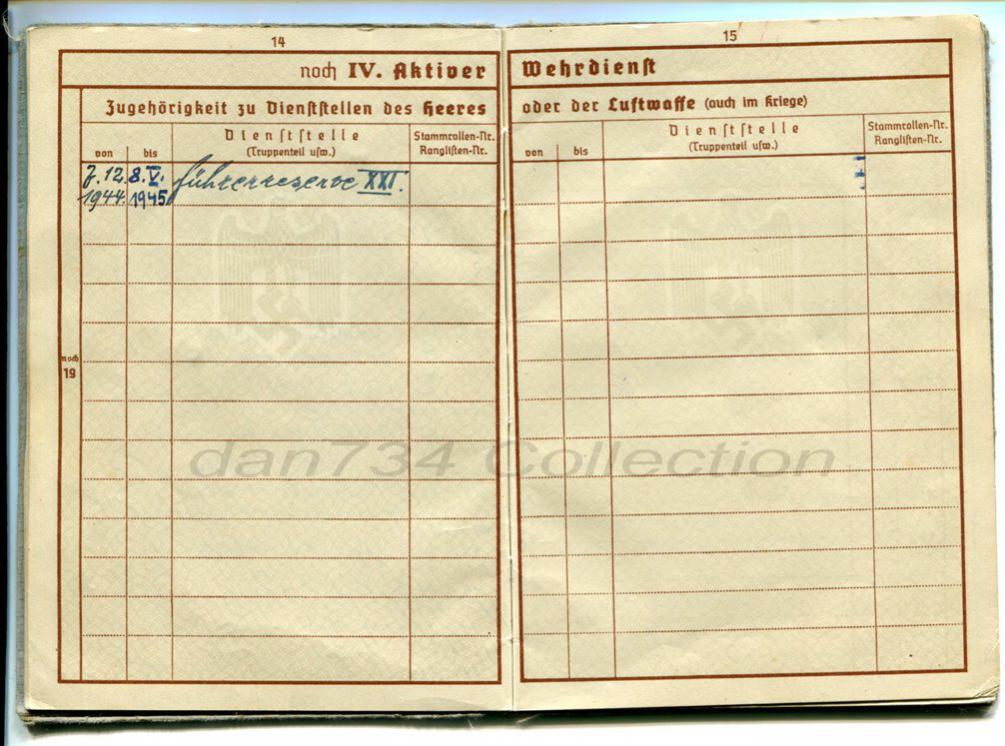 14
noch IV. Aktiver
Zugehörigkeit zu Dienststellen des Heeres
von
bis
Dienststelle
(Truppenteil usw.)
Stammrollen-Nr.
Ranglisten-Nr.
7.12. 8.V. Führerreserve XXI.
1944. 1945
noch
19
15
Wehrdienst
oder der Luftwaffe (auch im Kriege)
von
bis
Dienststelle
(Truppenteil usw.)
Stammrollen-Nr.
Ranglisten-Nr.
dan734 Collection